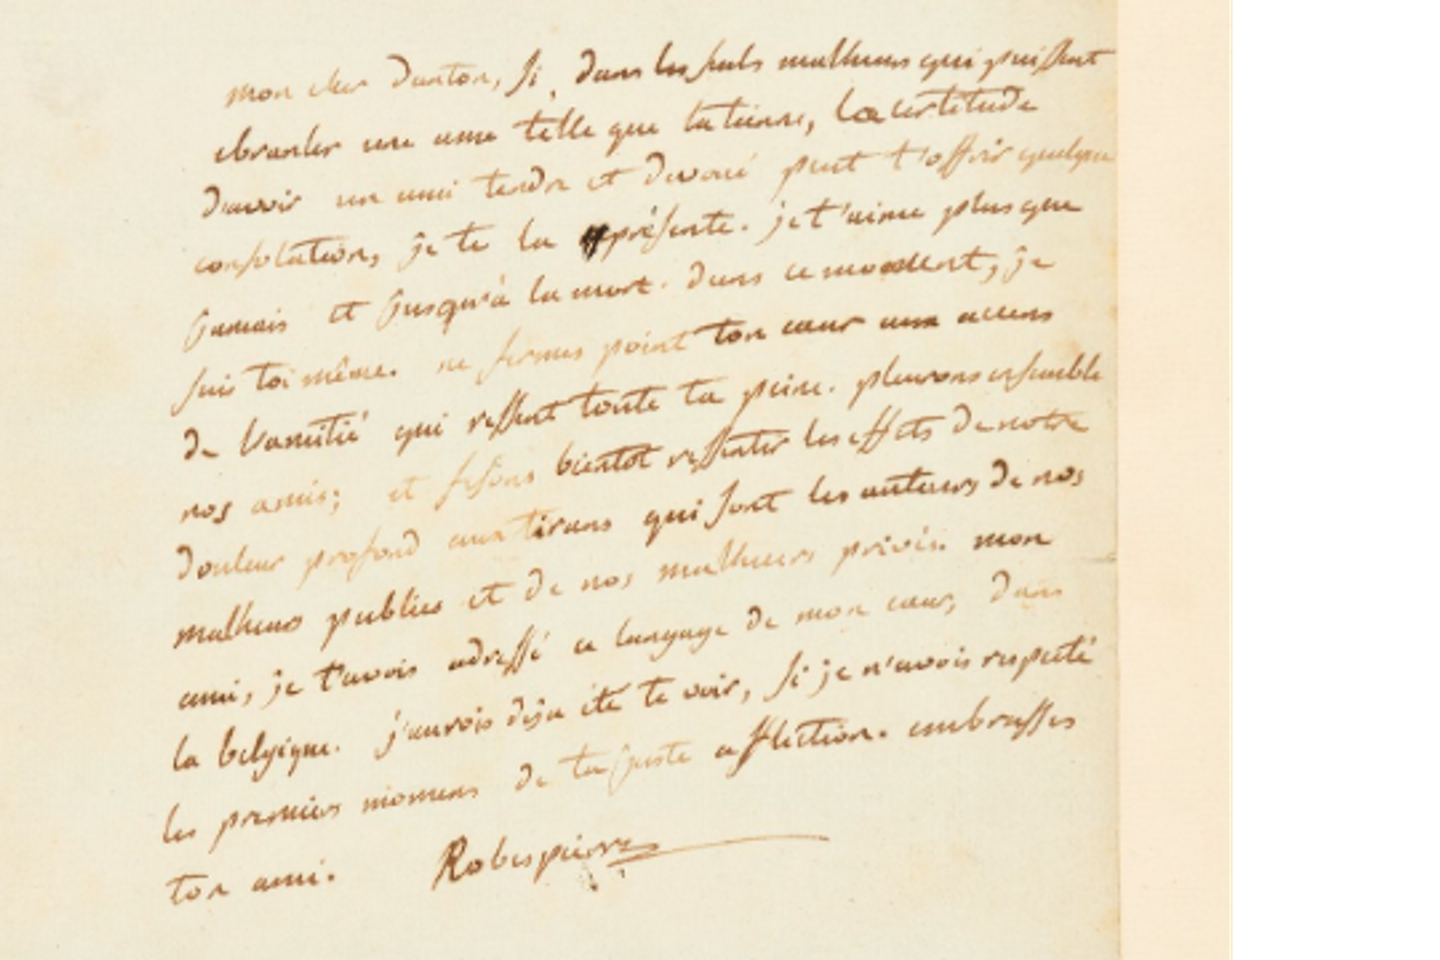 mon cher danton, si, dans les seuls malheurs qui puissent
ebranler une ame telle que la tienne, la certitude
d'avoir un ami tendre et devoué peut t'offrir quelque
consolation, je te la présente. je t'aime plus que
jamais et jusqu'à la mort. dans ce moment, je
suis toi même. ne fermes point ton cœur aux accens
de l'amitié qui ressent toute ta peine. pleurons ensemble
nos amis; et fesons bientôt ressentir les effets de notre
douleur profond aux tirans qui sont les auteurs de nos
malheurs publics et de nos malheurs privés. mon
ami, je t'avois adressé ce langage de mon cœur, dans
la belgique. j'aurois déja été te voir, si je n'avois respecté
les premiers momens de ta juste affliction. embrasses
ton ami. Robespierre